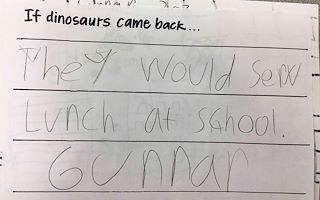 If dinosaurs came back...
They would serv
Lunch at school.
Gunnar